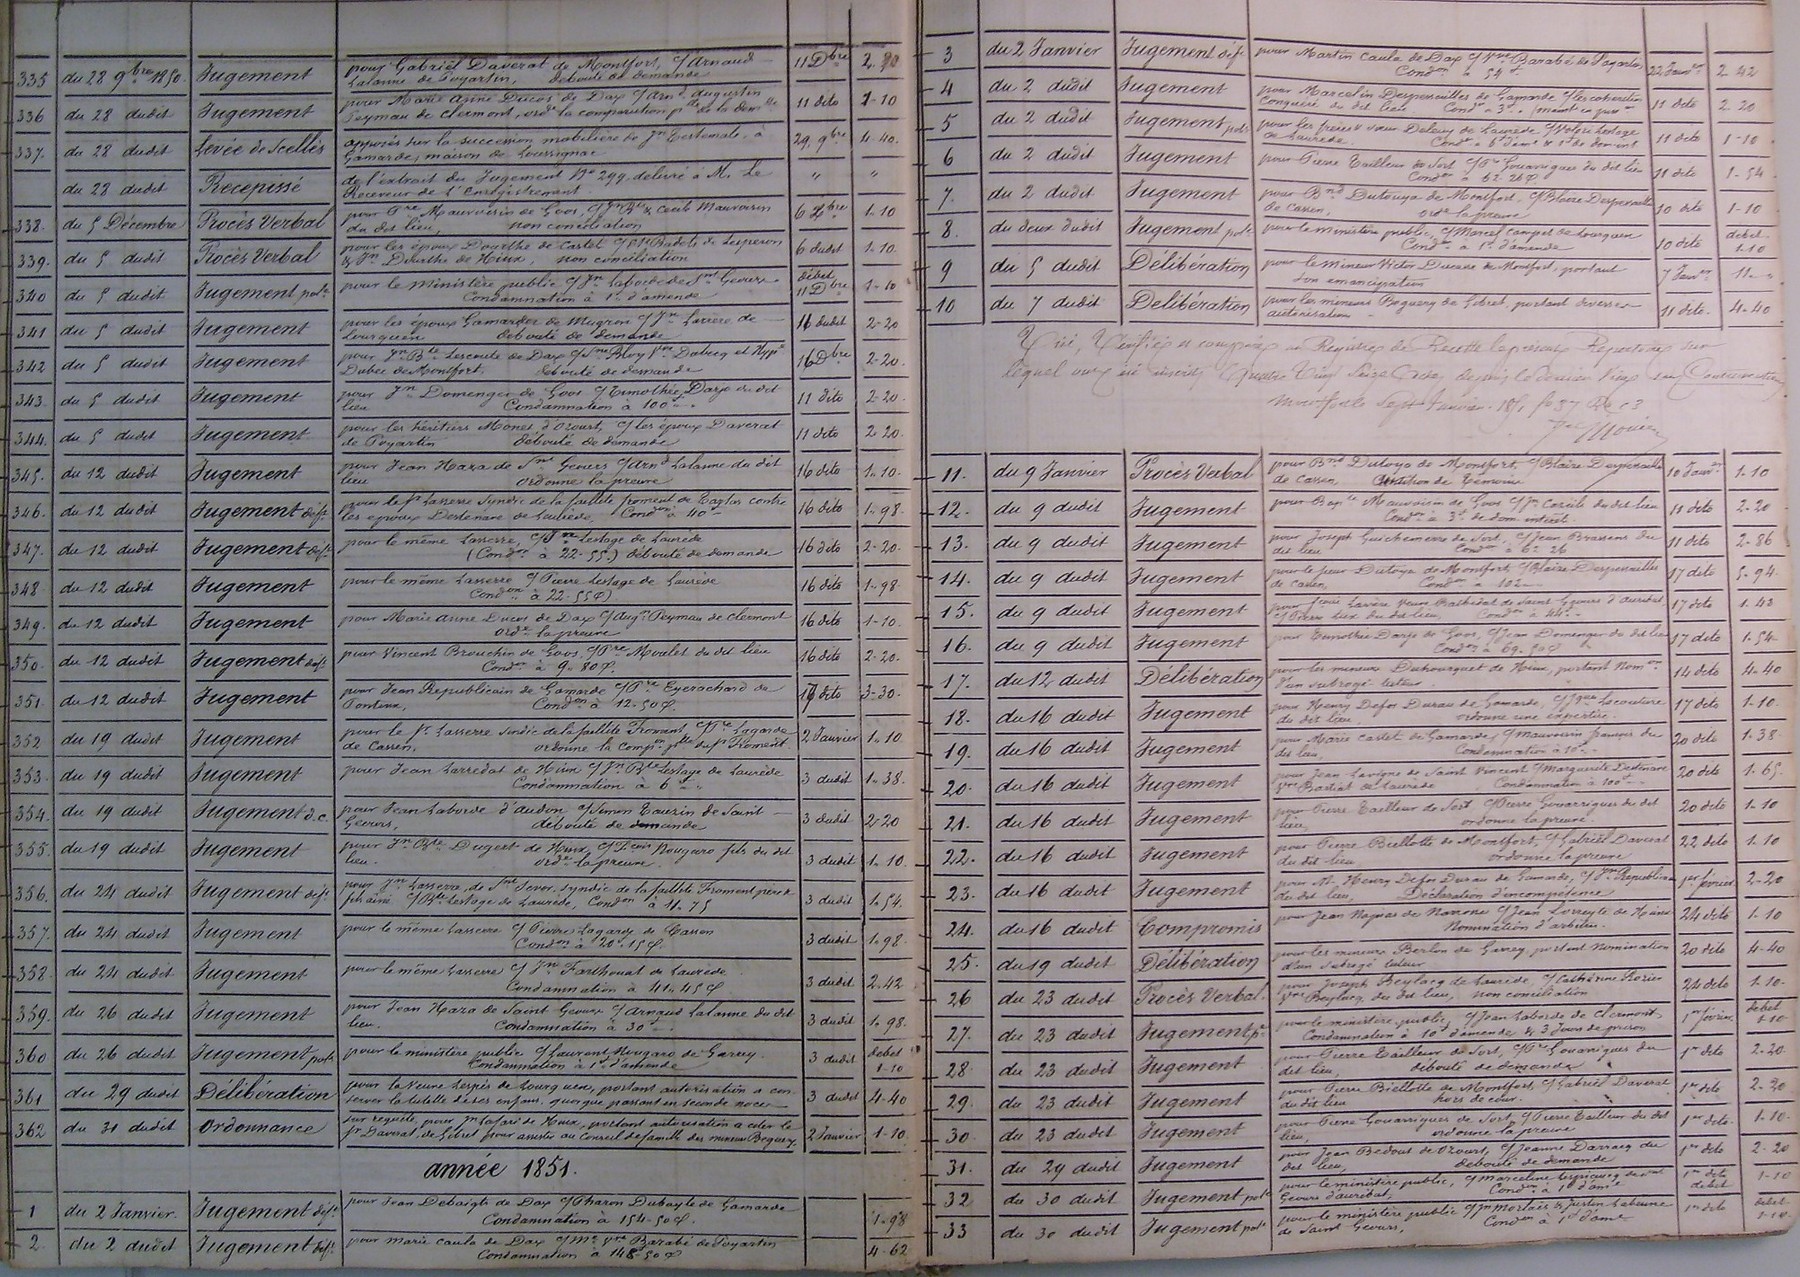 335 du 28 9bre 1850. Jugement pour Gabriel Daverat de Montfort, c/ Arnaud Lalanne de Poyartin, débouté de demande 11 Dbre 2.20
336 du 28 dudit Jugement pour Marie Anne Ducos de Dax c/ Arnd Augustin Peyman de Clermont, ordne la comparution plle de la demlle 11 dito 1-10
337. du 28 dudit Levée de Scellés apposés sur la succession mobilière de Jn à Gamarde, maison de 29. 9bre 4-40.
du 28 dudit Recepissé de l'extrait du Jugement No 299 delivré à M. Le Receveur de l'Enregistrement. " "
338. du 5 Décembre Procès Verbal pour Pre Mauvoisin de Goos, c/ Jn Bte & Cecile Mauvoisin du dit lieu, non conciliation 6 Dbre 1-10
339. du 5 dudit Procès Verbal pour les époux de Castel c/ Badets de & Jn de Hinx, non conciliation 6 dudit 1.10.
340 du 5 dudit Jugement pole pour le Ministère public c/ Jn Laborde de St Geours Condamnation à 1f d'amende débet 11 Dbre 1-10
341 du 5 dudit Jugement pour les époux Gamardes de Mugron c/ Jn Larrère de Lourquen débouté de demande 16 dudit 2-20
342 du 5 dudit Jugement pour Jn Bte Lescoute de Dax c/ Vve Dubecq et Hyp Dubec de Montfort. débouté de demande 16 Dbre 2-20.
343. du 5 dudit Jugement pour Jn Domenger de Goos c/ Timothée Darje du dit lieu Condamnation à 100f 11 dito 2-20.
344. du 5 dudit Jugement pour les héritiers Monet d'Ozourt, c/ les époux Daverat de Poyartin débouté de demande 11 dito 2.20.
345. du 12 dudit Jugement pour Jean Hara de St Geours c/ Arnd Lalanne du dit lieu ordonne la preuve 16 dito 1.10.
346. du 12 dudit Jugement déft pour le Sr Lasserre Syndic de la faillite Froment de contre les époux Destenave de Laurède, Condon à 40f 16 dito 1-98.
347. du 12 dudit Jugement déft pour le même Lasserre, c/ Lestage de Laurède (Condon à 22-55) débouté de demande 16 dito 2-20.
348 du 12 dudit Jugement pour le même Lasserre c/ Pierre Lestage de Laurède Condon à 22-55 16 dito 1-98.
349. du 12 dudit Jugement pour Marie Anne Ducos de Dax c/ Augn Peyman de Clermont ordne la preuve 16 dito 1-10.
350. du 12 dudit Jugement déft pour Vincent Brouchin de Goos c/ Pre Moulet du dit lieu Condon à 9. 80 16 dito 2-20.
351. du 12 dudit Jugement pour Jean Republicain de Gamarde c/ de Pontenx, Condon à 12-50 16 dito 3-30.
352 du 19 dudit Jugement pour le Sr Lasserre Sindic de la faillite Froment c/ Pre Lagarde de Cassen, ordonne la Compon plle du Sr Froment 2 Janvier 1.10.
353. du 19 dudit Jugement pour Jean Larredat de Hinx c/ Jn Bte Lestage de Laurède Condamnation à 6f 3 dudit 1.38.
354. du 19 dudit Jugement d.c. pour Jean Laborde d'audon c/ Simon Tauzin de Saint Geours, débouté de demande 3 dudit 2-20
355. du 19 dudit Jugement pour Jn Bte de Hinx, c/ Nougaro fils du dit lieu. ordne la preuve. 3 dudit 1. 10.
356. du 24 dudit Jugement déft pour Jn Lasserre, de St Sever, syndic de la faillite Froment père & fils ainé c/ Bte Lestage de Laurède, Condon à 11-75 3 dudit 1.54.
357. du 24 dudit Jugement pour le même Lasserre c/ Pierre Lagarde de Cassen Condon à 20f 15 3 dudit 1.98.
358. du 24 dudit Jugement pour le même Lasserre c/ Jn Farthouat de Laurède Condamnation à 41. 45 3 dudit 2.42
359. du 26 dudit Jugement pour Jean Hara de Saint Geours c/ Arnaud Lalanne du dit lieu. Condamnation à 30f 3 dudit 1. 98.
360 du 26 dudit Jugement pole pour le ministère public c/ Laurent Nougaro de Garrey. Condamnation à 1f d'amende 3 dudit debet 1-10
361 du 29 dudit Délibération pour la Veuve Lespès de Lourquen, portant autorisation a conserver la tutelle de ses enfans, quoique passant en seconde noces 3 dudit 4-40
362 du 31 dudit Ordonnance sur requête, pour Jn de Hinx, portant autorisation a citer le Sr Daverat, de Gibret pour assister au Conseil de famille des mineurs Beguery 2 Janvier 1-10
année 1851.
1 du 2 Janvier. Jugement déft pour Jean Debaigts de Dax c/ Pharon Duboyle de Gamarde Condamnation à 154-50 1-98
2. du 2 dudit Jugement déft pour Marie Caula de Dax c/ Vve Barabé de Poyartin Condamnation à 148-50 4-62
3 du 2 Janvier Jugement déft pour Martin Caula de Dax c/ Vve Barabé de Poyartin, Condon à 54f 22 Janvr 2 42
4 du 2 dudit Jugement pour Marcelin Desperailles de Gamarde c/ du dit lieu Condon à 3f 11 dito 2 20
5 du 2 dudit Jugement pole pour les frères & sœur de Laurède c/ Lestage de Laurède. Condon à 11 dito 1-10
6 du 2 dudit Jugement pour Pierre Tailleur de Sort c/ Pre Gouarrigues du dit lieu Condon à 62-26 11 dito 1-54
7. du 2 dudit Jugement pour Bnd Dutouya de Montfort c/ Blaise Desperailles de Cassen, ordne la preuve 10 dito 1-10
8. du deux dudit Jugement pole pour le ministère public, c/ Marcel Campet de Lourquen Condon à 1f d'amende 10 dito debet. 1.10
9 du 5 dudit Délibération pour le mineur Victor Ducasse de Montfort, portant son émancipation 7 Janvr 11-"
10 du 7 dudit Délibération pour les mineurs Beguery de Gibret, portant diverses autorisation 11 dito. 4-40
Vérifié et comparé au Registre de Recette le présent Répertoire sur
lequel ont été inscrits Quatre Vingt Seize depuis le dernier Visa
Montfort le Sept Janvier 1851 fo 37
11. du 9 Janvier Procès Verbal pour Bnd Dutoya de Montfort, c/ Blaise Desperailles de Cassen, Audition de témoins 10 Janvr 1-10
12. du 9 dudit Jugement pour Bapte Mauvoisin de Goos c/ Jn Cecile du dit lieu Condon à 3f de dom. intérêt. 11 dito 2-20
13. du 9 dudit Jugement pour Joseph Guichemerre de Sort, c/ Jean Brassens du dit lieu Condon à 62 26 11 dito 2-86
14. du 9 dudit Jugement pour le sieur Dutoya de Montfort, c/ Blaise Desperailles de Cassen, Condon à 102 17 dito 5-94.
15. du 9 dudit Jugement pour Lavère Veuve de Saint Geours d'auribat c/ Pierre du dit lieu. Condon à 44 17 dito 1.43
16. du 9 dudit Jugement pour Timothée Darje de Goos, c/ Jean Domenger du dit lieu Condon à 69.50 17 dito 1.54.
17. du 12 dudit Délibération pour les mineurs Duhourquet de Hinx, portant Nomon d'un subrogé tuteur 14 dito 4-40
18. du 16 dudit Jugement pour Henry Defos Durau de Gamarde, c/ Lacouture du dit lieu. ordonne une expertise. 17 dito 1-10.
19. du 16 dudit Jugement pour Marie Castet de Gamarde, c/ Mauvoisin françois du dit lieu, Condamnation à 10f 20 dito 1.38.
20. du 16 dudit Jugement pour Jean Lavigne de Saint Vincent c/ Marguerite Destenave Vve Bastiat de Laurède Condamnation à 100f 20 dito 1.65
21. du 16 dudit Jugement pour Pierre Tailleur de Sort c/ Pierre Gouarrigues du dit lieu, ordonne la preuve 20 dito 1-10
22. du 16 dudit Jugement pour Pierre Biellotte de Montfort, c/ Gabriel Daverat du dit lieu ordonne la preuve 22 dito 1.10
23. du 16 dudit Jugement pour M. Henry Defos Durau de Gamarde, c/ Republicain du dit lieu, Déclaration d'incompétence 1er février 2-20
24. du 16 dudit Compromis pour Jean Magnas de Narrosse c/ Jean Lorreyte de Hinx Nomination d'arbitre. 24 dito 1-10
25. du 19 dudit Délibération pour les mineurs Berlon de Garrey, portant nomination d'un subrogé tuteur 20 dito 4-40
26 du 23 dudit Procès Verbal. pour Joseph Beylacq de Laurède, c/ Cathérine Vve Beylacq du dit lieu, non conciliation 24 dito 1.10.
27. du 23 dudit Jugement ple pour le ministère public, c/ Jean Laborde de Clermont, Condamnation à 10f d'amende & 3 Jours de prison 1er février debet 1-10
28 du 23 dudit Jugement pour Pierre Tailleur de Sort, c/ Pre Gouarrigues du dit lieu, débouté de demande 1er dito 2-20.
29. du 23 dudit Jugement pour Pierre Biellotte de Montfort c/ Gabriel Daverat du dit lieu hors de cour. 1er dito 2-20
30. du 23 dudit Jugement pour Pierre Gouarrigues de Sort, c/ Pierre Tailleur du dit lieu, ordonne la preuve 1er dito. 1-10.
31. du 29 dudit Jugement pour Jean Bedout de Ozourt, c/ Jeanne Darracq du dit lieu, débouté de demande 1er dito 2-20
32 du 30 dudit Jugement pole pour le ministère public, c/ Marceline de Saint Geours d'auribat, Condon à 1f d'amde 1er dito debet 1-10
33 du 30 dudit Jugement pole pour le ministère public c/ Jn Morlaes & Justin Labeune de Saint Geours, Condon à 1f d'amde 1er dito debet 1-10